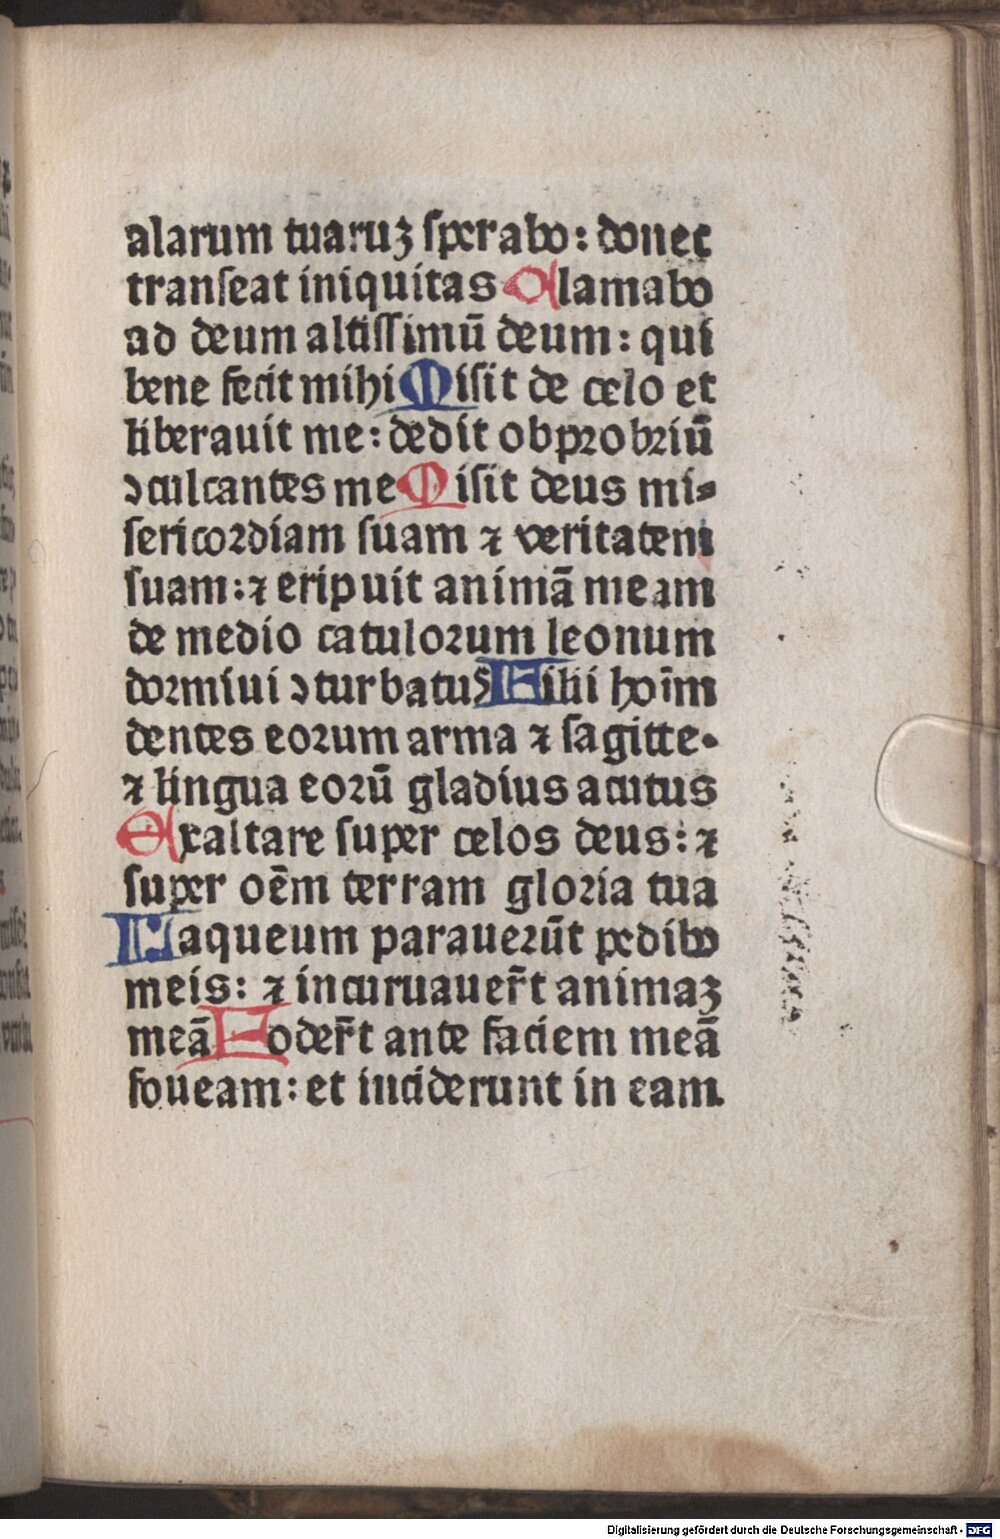 alarum tuaruꝫ sperabo: donec
transeat iniquitas Clamabo
ad deum altissimū deum: qui
bene fecit mihi Misit de celo et
liberauit me: dedit obprobriū
ↄculcantes me Misit deus mi⸗
sericordiam suam ⁊ veritatem
suam: ⁊ eripuit animā meam
de medio catulorum leonum
dormiui ↄturbatus Filii hoīm
dentes eorum arma ⁊ sagitte.
⁊ lingua eorū gladius acutus
Exaltare super celos deus: ⁊
super oēm terram gloria tua
Laqueum parauerūt pedibꝰ
meis: ⁊ incuruauer̄t animaꝫ
meā Foder̄t ante faciem meā
foueam: et inciderunt in eam.
Digitalisierung gefördert durch die Deutsche Forschungsgemeinschaft - DFG